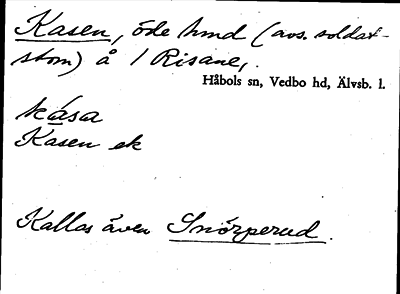 Kasen, öde hmd (avs. soldat-
stom) å 1 Risane,.
Håbols sn, Vedbo hd, Älvsb. l.
kása
Kasen ek
Kallas även Snörperud.